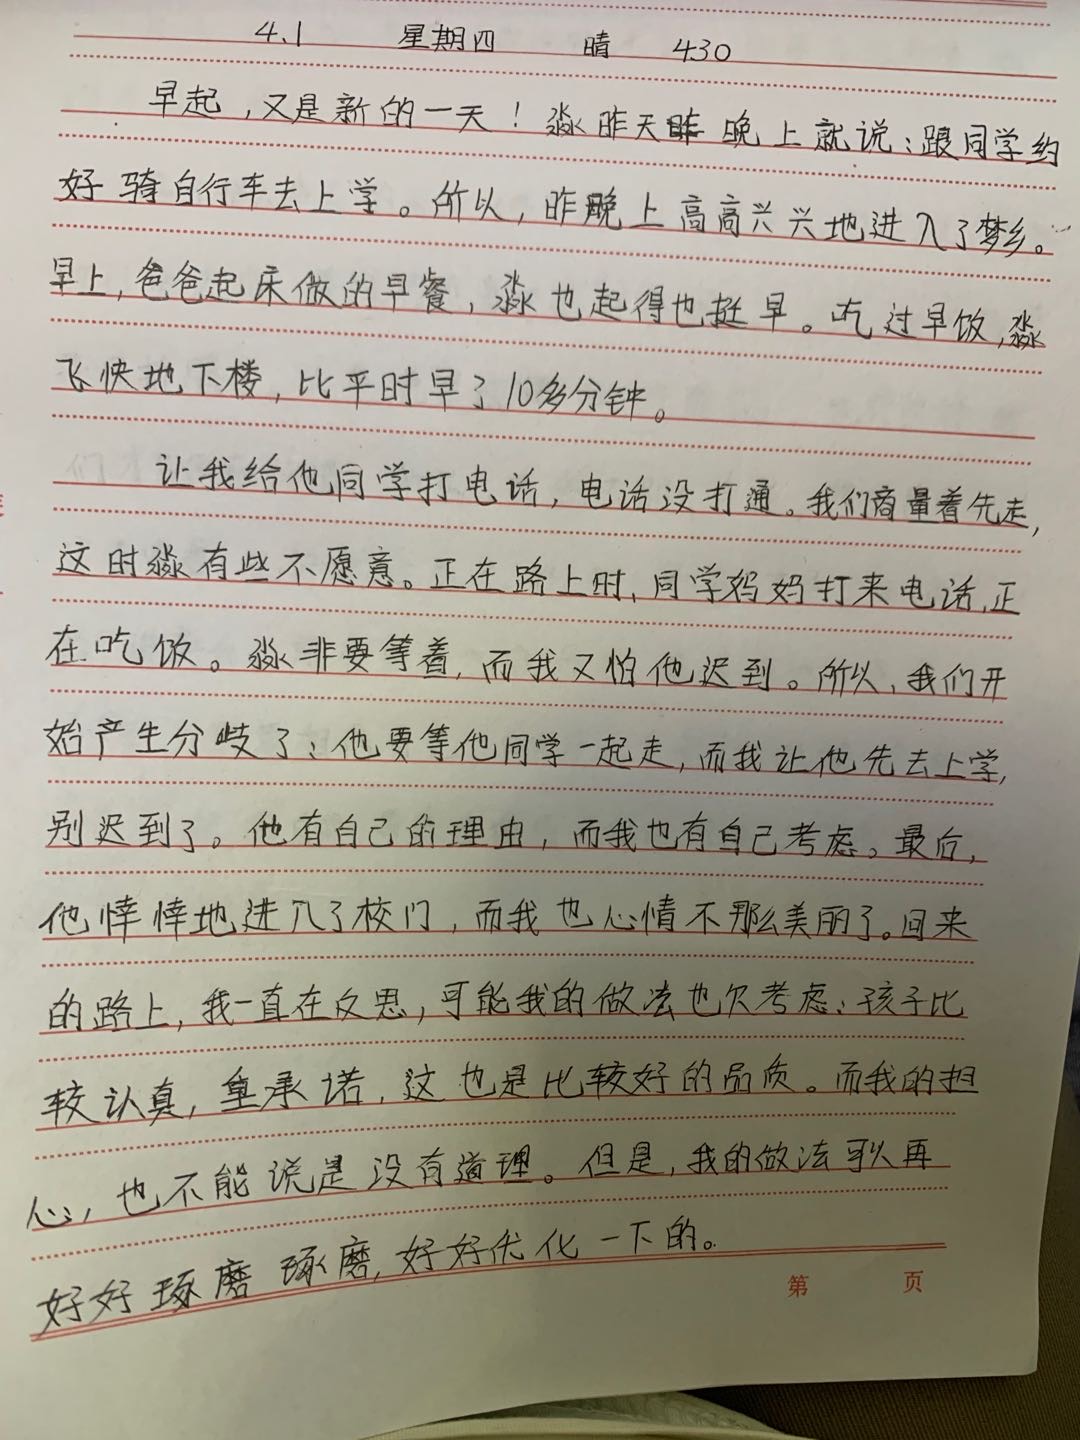 4.1 星期四 晴 430
早起，又是新的一天！淼昨天晚上就说：跟同学约
好骑自行车去上学。所以，昨晚上高高兴兴地进入了梦乡。
早上，爸爸起床做的早餐，淼也起得也挺早。吃过早饭，淼
飞快地下楼，比平时早了10多分钟。
让我给他同学打电话，电话没打通。我们商量着先走，
这时淼有些不愿意。正在路上时，同学妈妈打来电话，正
在吃饭。淼非要等着，而我又怕他迟到。所以，我们开
始产生分歧了：他要等他同学一起走，而我让他先去上学，
别迟到了。他有自己的理由，而我也有自己考虑。最后，
他悻悻地进入了校门，而我也心情不那么美丽了。回来
的路上，我一直在反思，可能我的做法也欠考虑：孩子比
较认真，重承诺，这也是比较好的品质。而我的担
心，也不能说是没有道理。但是，我的做法可以再
好好琢磨琢磨，好好优化一下的。
第 页